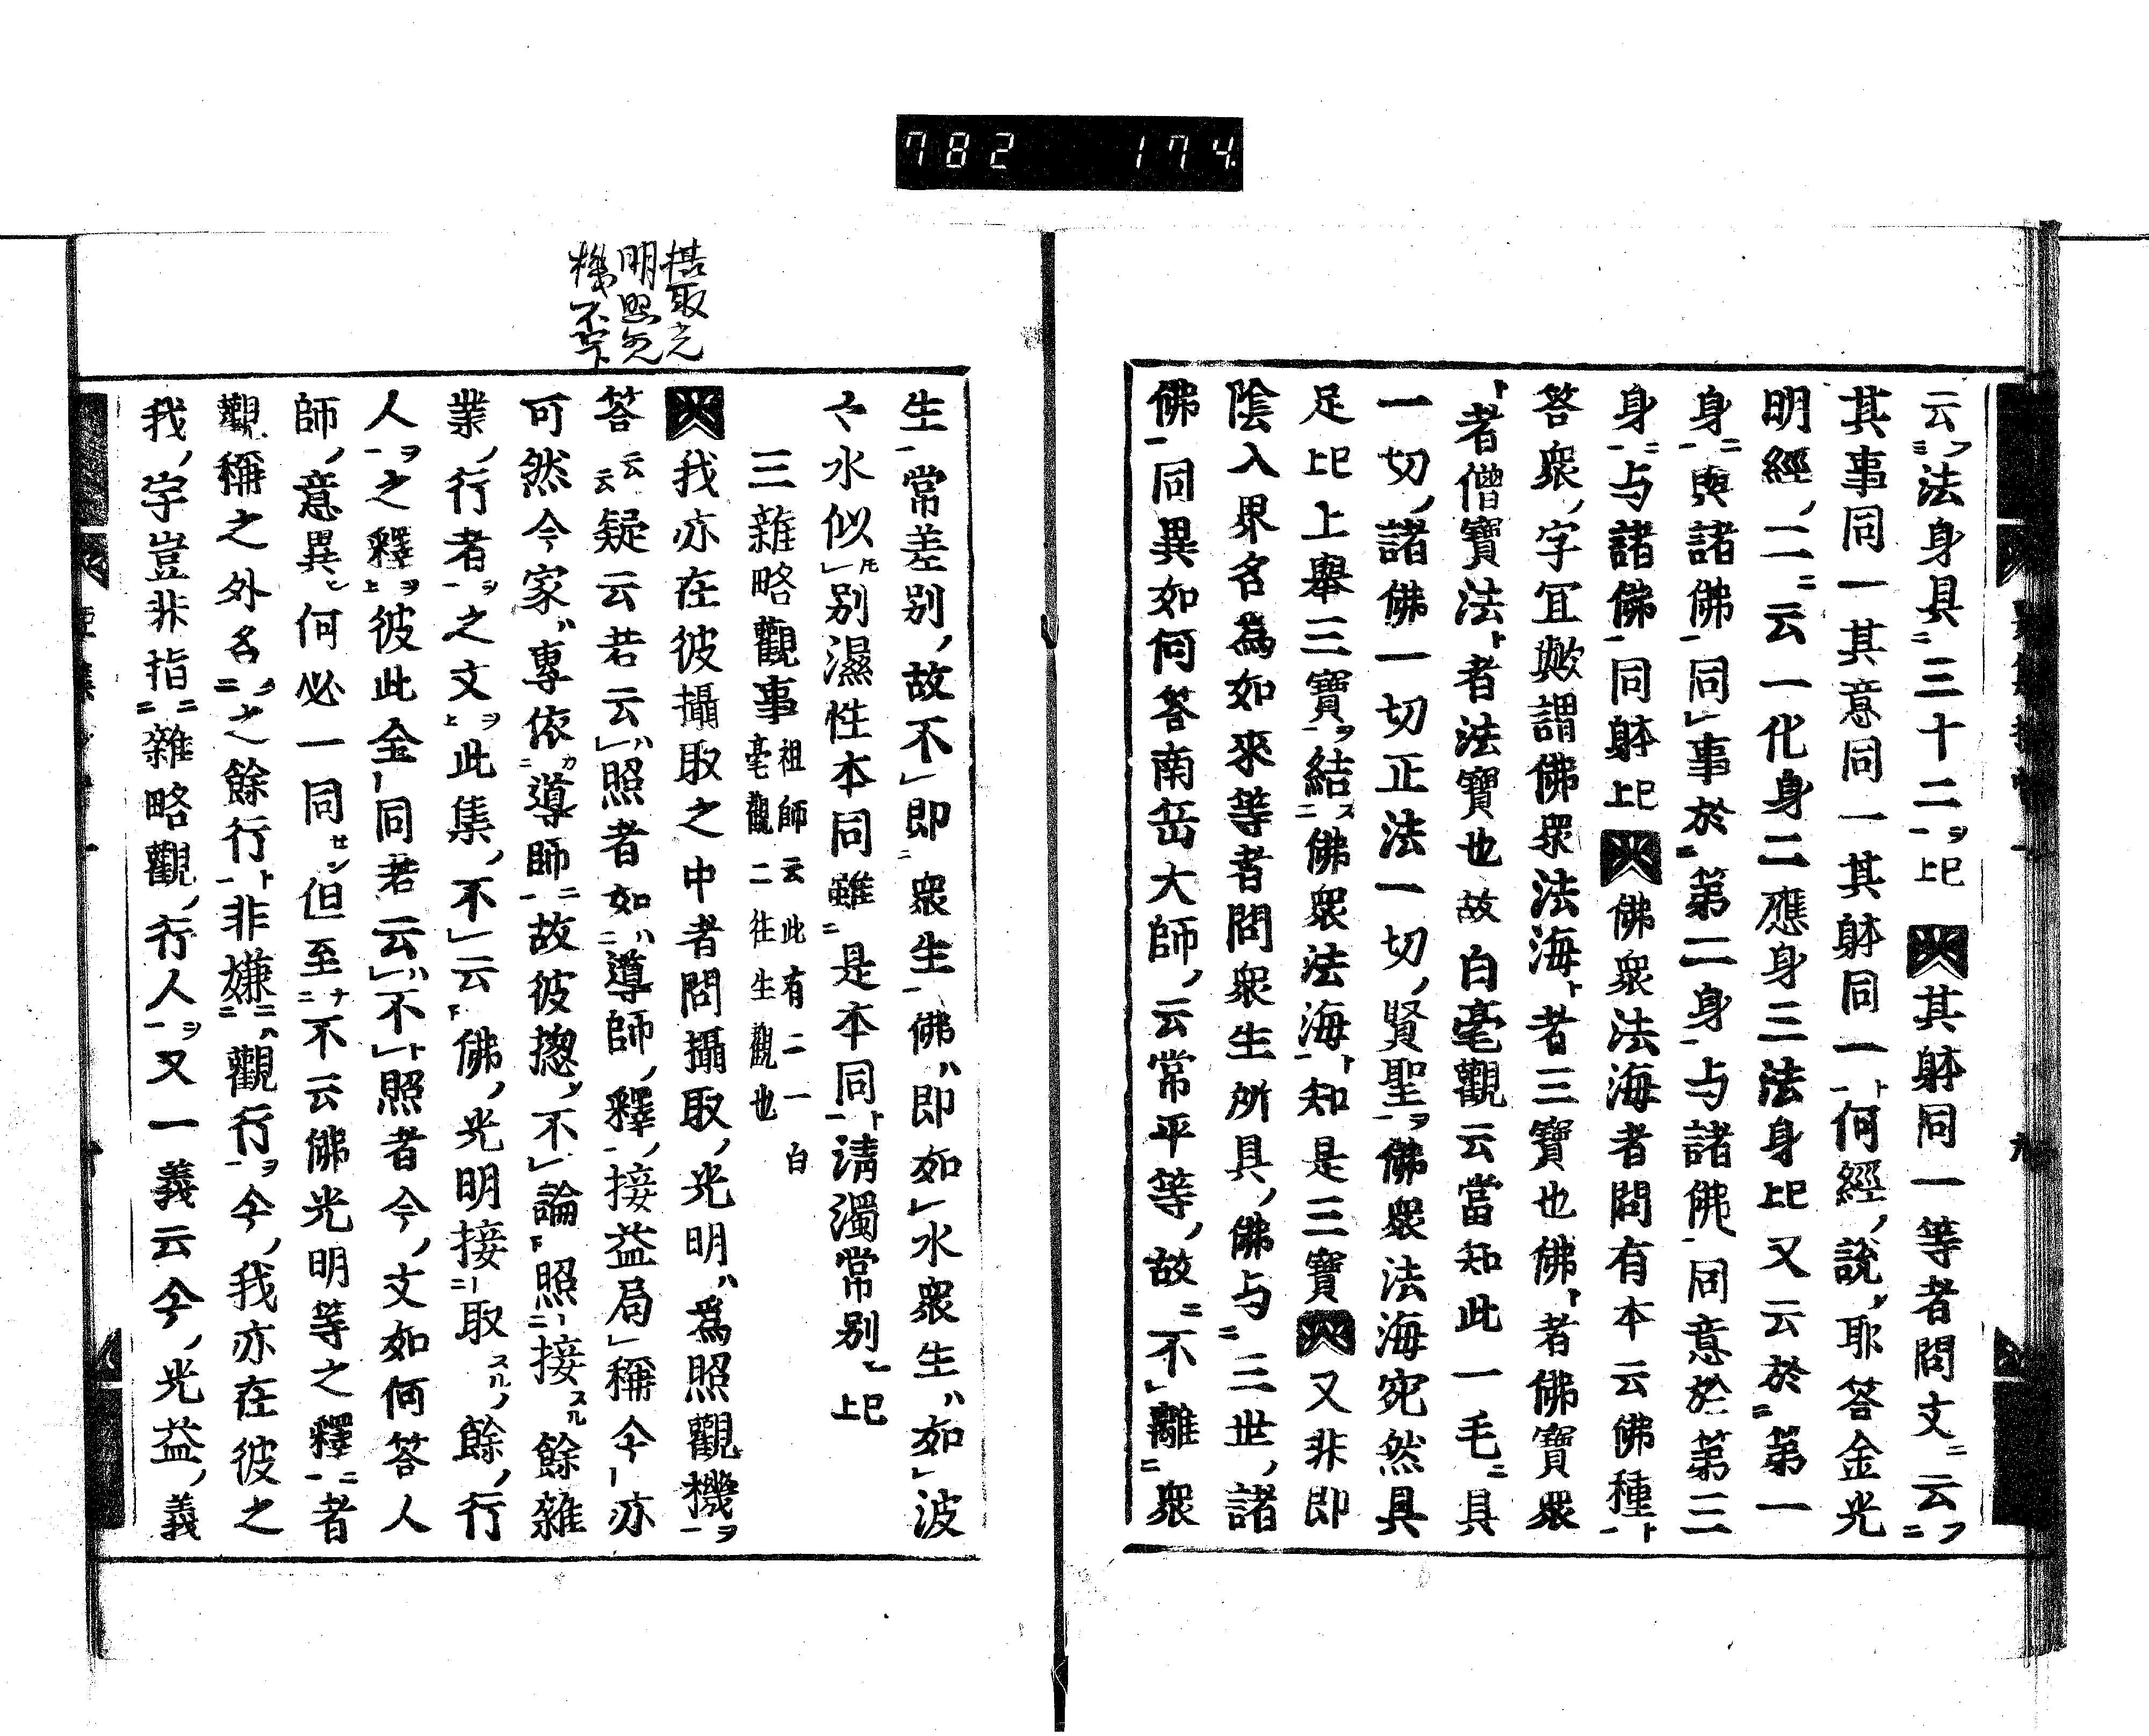 782 174
云フ法身具三十二ヲ已上其躰同一等者問文ニ云フ
其事同一其意同一其躰同一ト何經ノ說ソ耶答金光
明經ノ二ニ云一化身二應身三法身已上又云於第一
身與諸佛同事於第二身与諸佛同意於第三
身ニ与諸佛同躰已上佛衆法海者問有本云佛種ト
答衆ノ字冝歟謂佛衆法海ト者三寶也佛ト者佛寶衆
ト者僧寶法ト者法寶也故白毫觀云當知此一毛ニ具
一切ノ諸佛一切正法一切ノ賢聖ヲ佛衆法海宛然具
足已上上舉三寶ヲ結ス佛衆法海ト知是三寶又非即
陰入界名為如來等者問衆生所具ノ佛与三世ノ諸
佛同異如何答南岳大師ノ云常平等ノ故ニ不離衆
生常差別ノ故不即衆生佛ハ即如水衆生ハ如波
々水似別濕性本同雖是本同ト清濁常別已上
三雜略觀事祖師云此有二一白
毫觀二往生觀也
我亦在彼攝取之中者問攝取ノ光明ハ爲照觀機ヲ
答云云疑云若云ハ照者如ハ導師ノ釋ノ接益局稱今亦
可然今家ハ專依カ導師ニ故彼揔ソ不論照接スル餘雜
業ノ行者ヲ之文ヲ此集ノ不云佛ノ光明接取スルノ餘ノ行
人ヲ之釋ヲ彼此全同若云ハ不ト照者今ノ文如何答人
師ノ意異ヒ何必一同セン但至ナ不云佛光明等之釋ニ者
觀稱之外名ノ之餘行ト非嫌ニハ觀行ヲ今ノ我亦在彼之
我ノ字豈非指ニ雜略觀ノ行人ヲ又一義云今ノ光益ノ義
攝取光
明照
機不